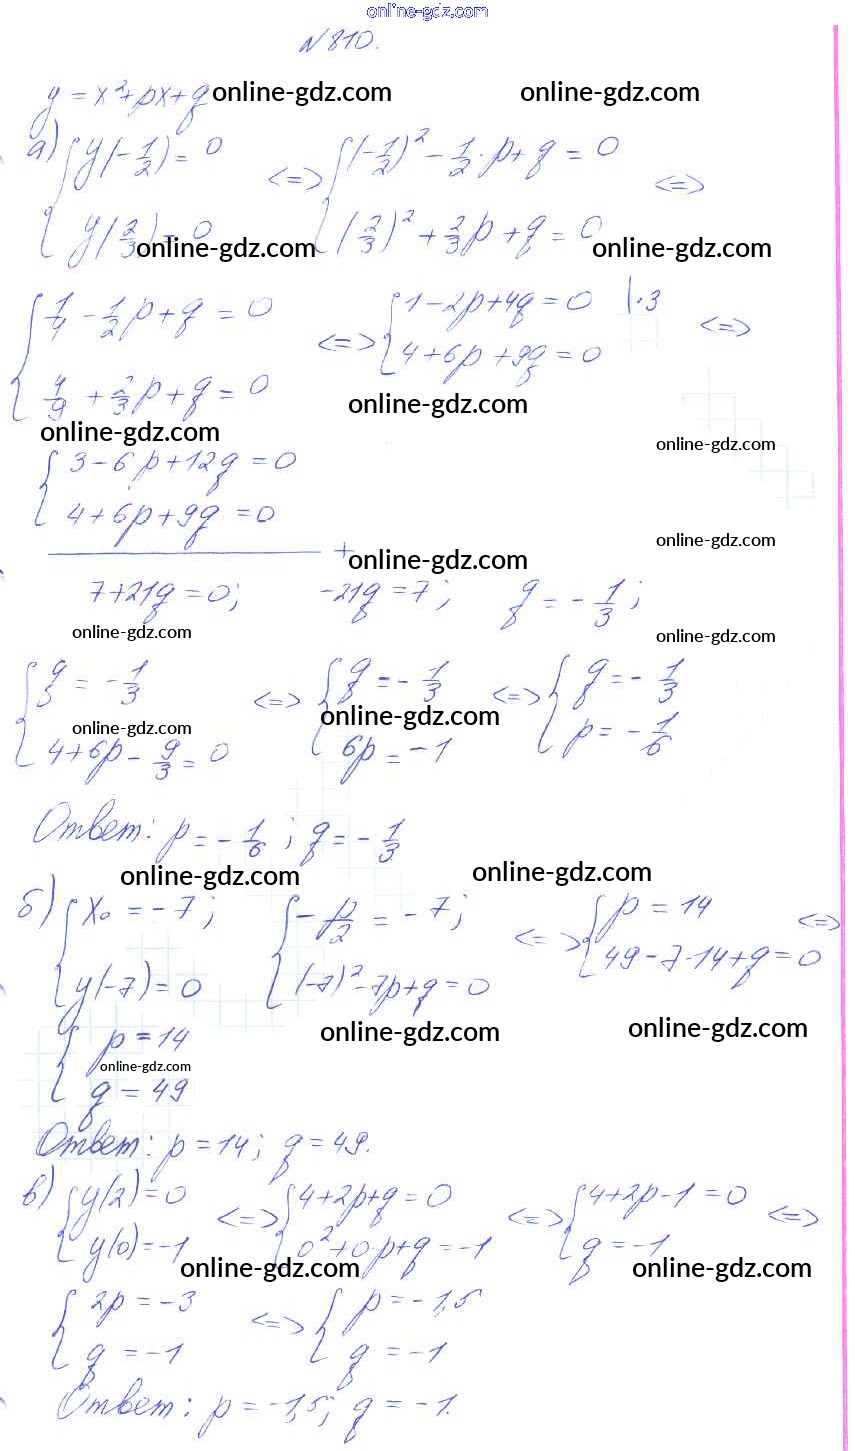 online-gdz.com
N 810.
y = x² + px + q online-gdz.com online-gdz.com
а) { y(-1/2) = 0 <=> { (-1/2)² - 1/2 · p + q = 0 <=>
y(2/3) = 0 (2/3)² + 2/3 p + q = 0
online-gdz.com online-gdz.com
{ 1/4 - 1/2 p + q = 0 <=> { 1 - 2p + 4q = 0 | · 3 <=>
4/9 + 2/3 p + q = 0 4 + 6p + 9q = 0
online-gdz.com
online-gdz.com online-gdz.com
{ 3 - 6p + 12q = 0
4 + 6p + 9q = 0
+ online-gdz.com online-gdz.com
7 + 21q = 0; -21q = 7; q = - 1/3;
online-gdz.com online-gdz.com
{ q = - 1/3 <=> { q = - 1/3 <=> { q = - 1/3
4 + 6p - 9/3 = 0 6p = -1 p = - 1/6
online-gdz.com online-gdz.com
Ответ: p = - 1/6; q = - 1/3
online-gdz.com online-gdz.com
б) { x₀ = -7; { - p/2 = -7; <=> { p = 14 <=>
y(-7) = 0 (-7)² - 7p + q = 0 49 - 7 · 14 + q = 0
{ p = 14 online-gdz.com online-gdz.com
online-gdz.com
q = 49
Ответ: p = 14; q = 49.
в) { y(2) = 0 <=> { 4 + 2p + q = 0 <=> { 4 + 2p - 1 = 0 <=>
y(0) = -1 0² + 0·p + q = -1 q = -1
online-gdz.com online-gdz.com
{ 2p = -3 <=> { p = -1,5
q = -1 q = -1
Ответ: p = -1,5; q = -1.